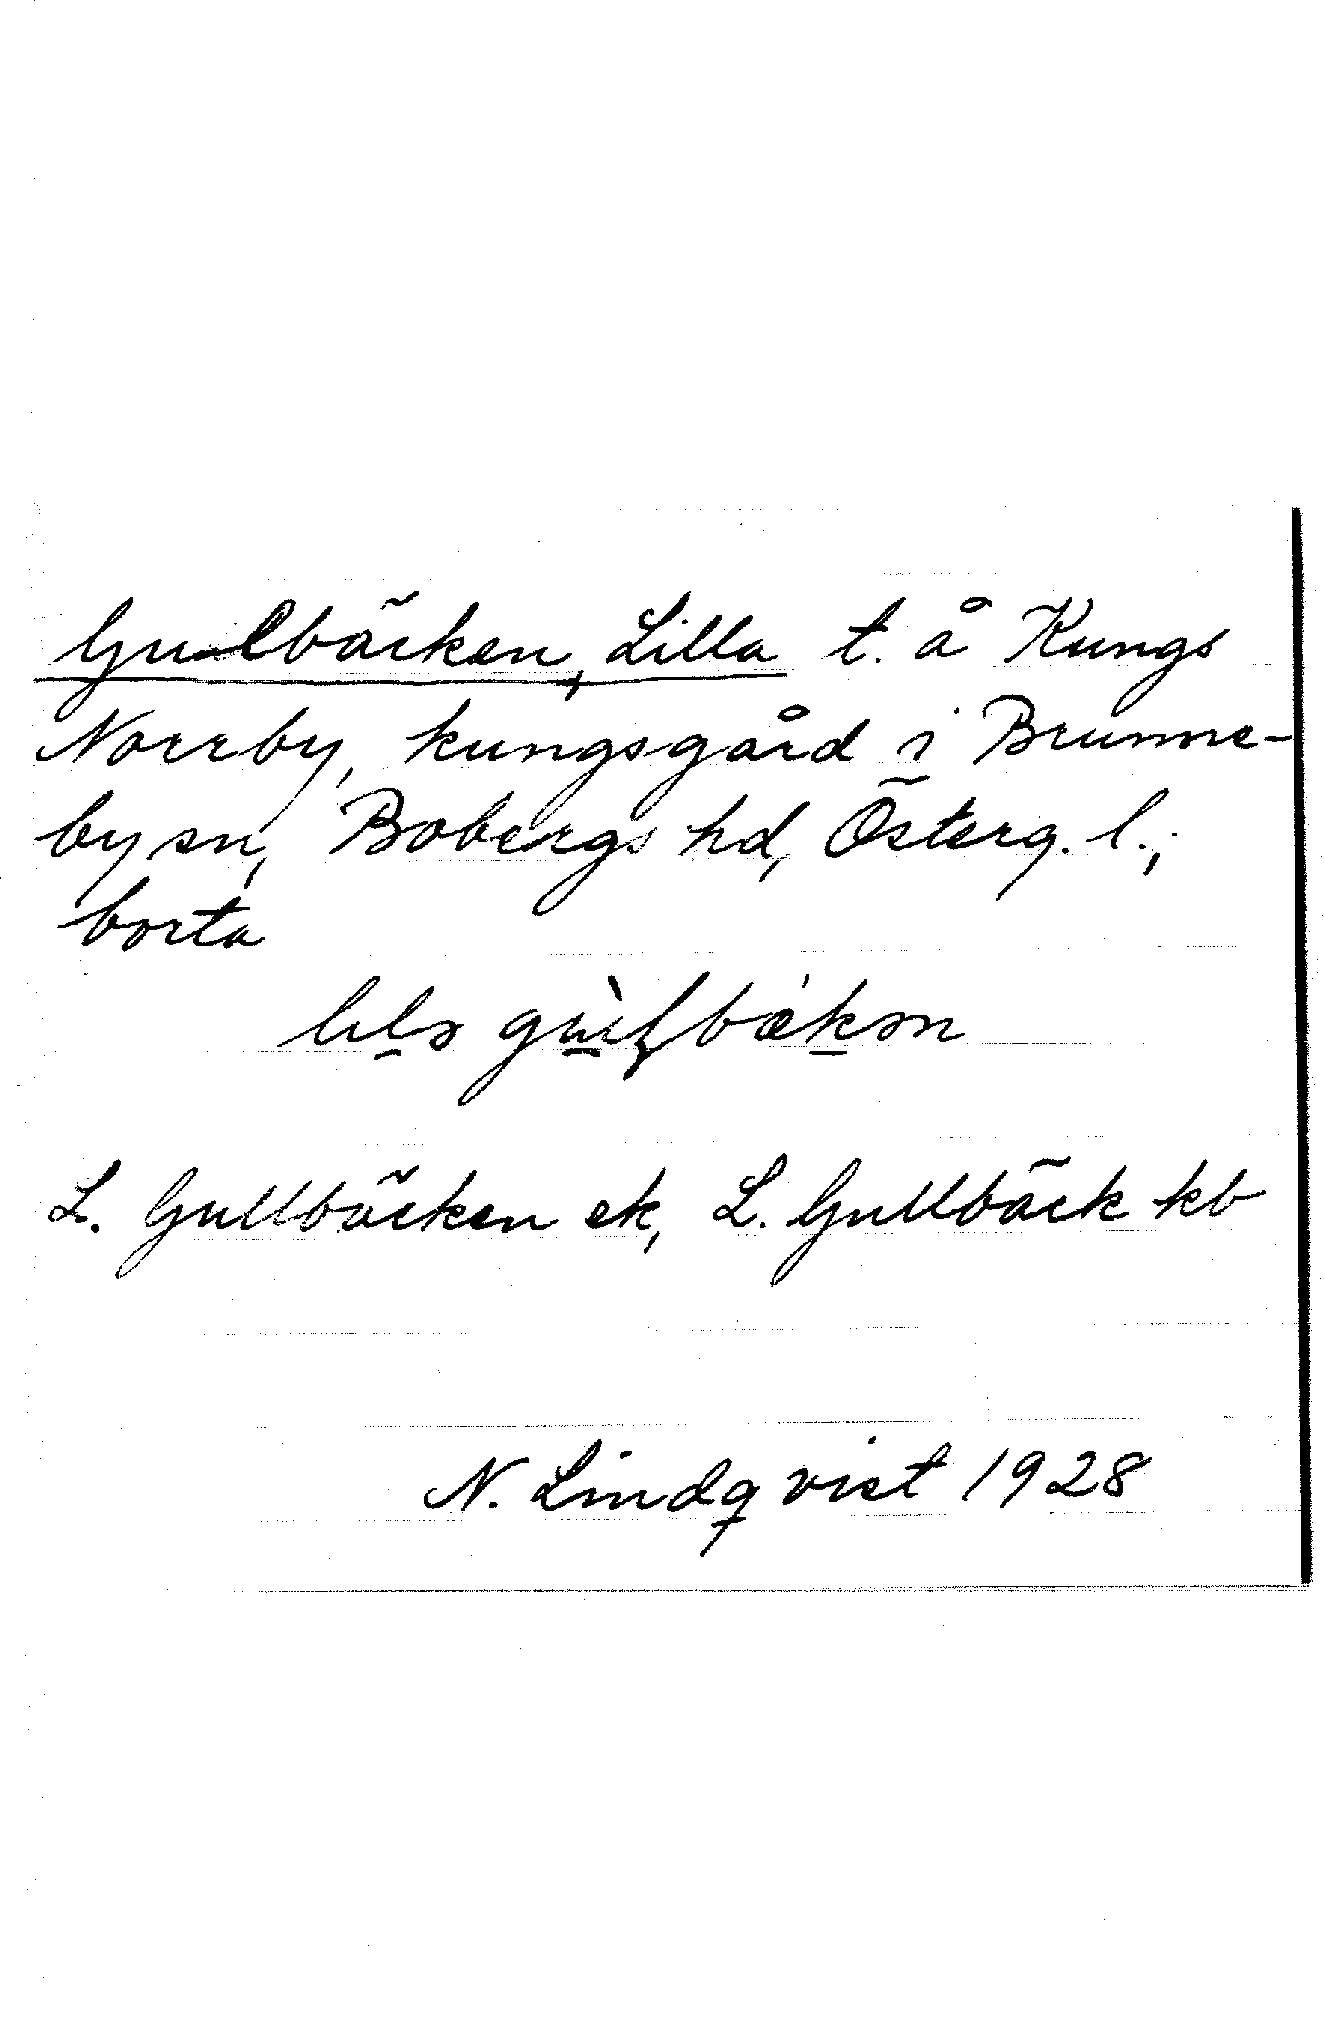 Gulbäcken, Lilla t. å Kungs
Norrby, kungsgård i Brunne-
by sn, Bobergs hd, Österg. l.,
borta
L. Gullbäcken ek, L. Gullbäck kb
N. Lindqvist 1928